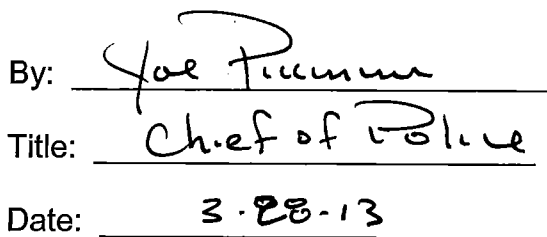 By: Joe
Title: Chief of Police
Date: 3-28-13